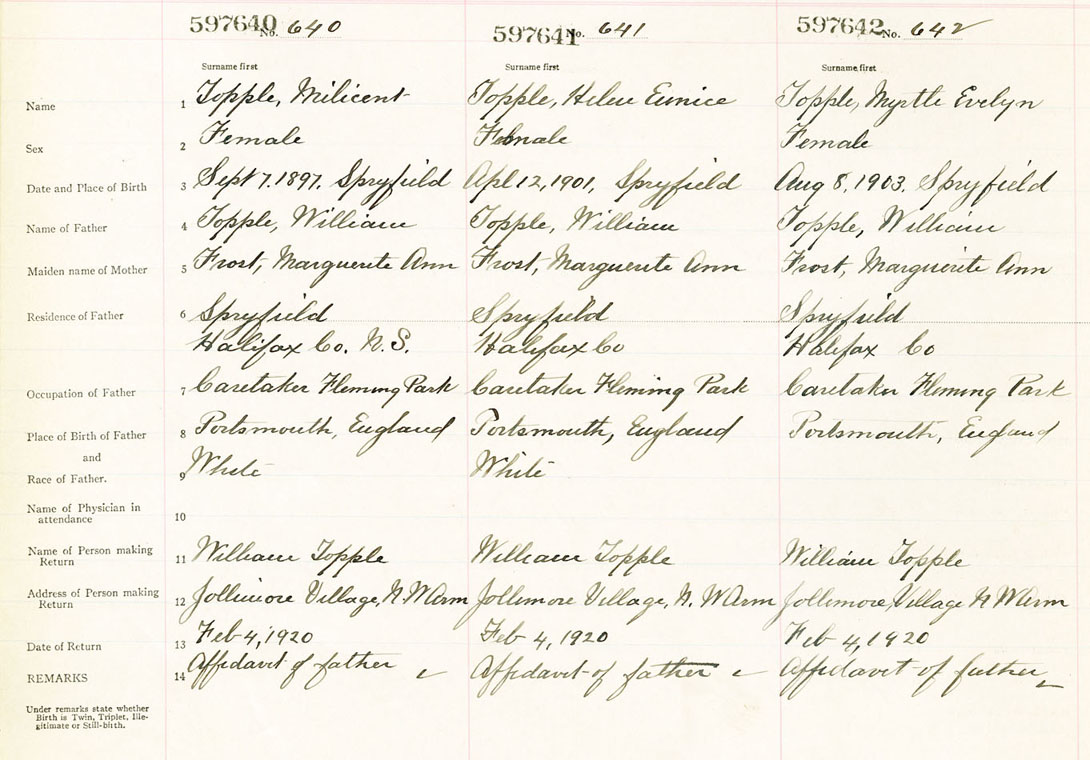 597640 No. 640 597641 No. 641 597642 No. 642
Surname first Surname first Surname first
Name 1 Topple, Milicent Topple, Helen Eunice Topple, Myrtle Evelyn
Sex 2 Female Female Female
Date and Place of Birth 3 Sept 7, 1897, Spryfield Apl 12, 1901, Spryfield Aug 8, 1903. Spryfield
Name of Father 4 Topple, William Topple, William Topple, William
Maiden name of Mother 5 Frost, Marguerite Ann Frost, Marguerite Ann Frost, Marguerite Ann
Residence of Father 6 Spryfield Spryfield Spryfield
Halifax Co. N.S. Halifax Co Halifax Co
Occupation of Father 7 Caretaker Fleming Park Caretaker Fleming Park Caretaker Fleming Park
Place of Birth of Father 8 Portsmouth, England Portsmouth, England Portsmouth, England
and
Race of Father. 9 White White
Name of Physician in
attendance 10
Name of Person making
Return 11 William Topple William Topple William Topple
Address of Person making
Return 12 Jollimore Village, N.W Arm Jollimore Village, N. W Arm Jollimore, Village N W Arm
Date of Return 13 Feb 4, 1920 Feb 4, 1920 Feb 4, 1920
REMARKS 14 Affidavit of father Affidavit of father Affidavit of father
Under remarks state whether
Birth is Twin, Triplet, Ille-
gitimate or Still-birth.